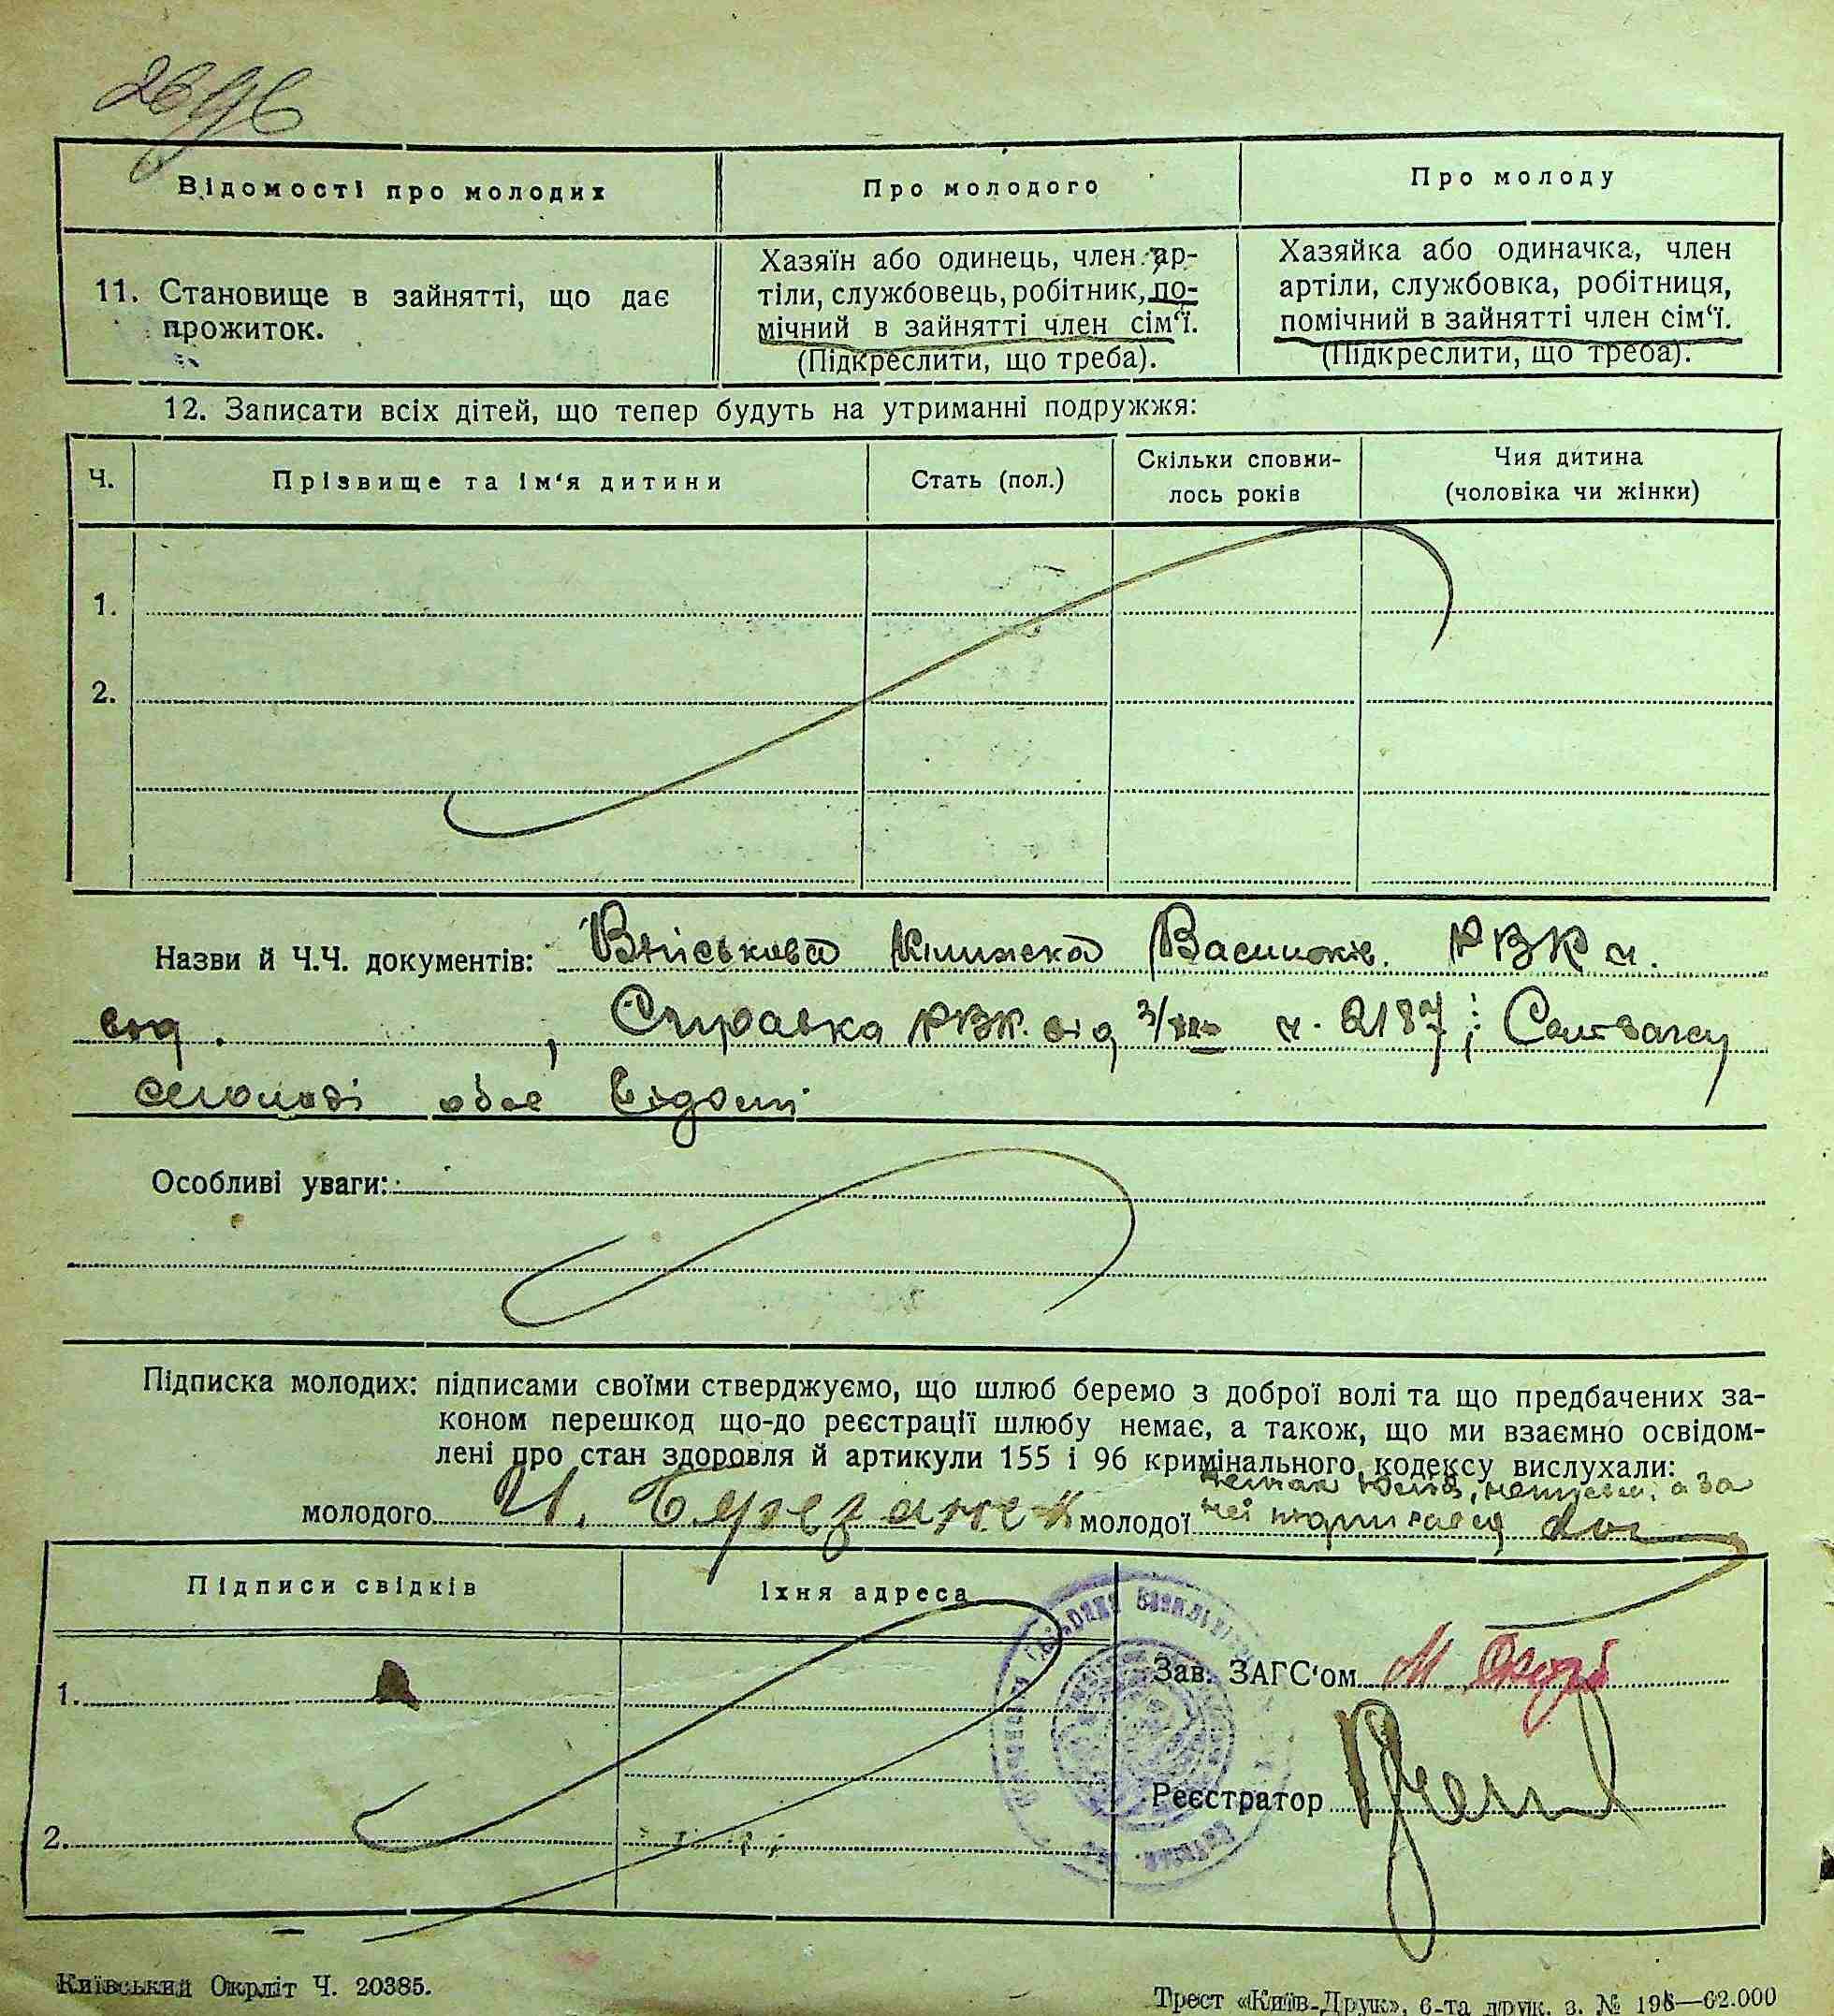 Відомості про молодих
Про молодого
Про молоду
11. Становище в зайнятті, що дає
прожиток.
Хазяїн або одинець, член ар-
тіли, службовець, робітник, по-
мічний в зайнятті член сім‘ї.
(Підкреслити, що треба).
Хазяйка або одиначка, член
артіли, службовка, робітниця,
помічний в зайнятті член сім‘ї.
(Підкреслити, що треба).
12. Записати всіх дітей, що тепер будуть на утриманні подружжя:
Ч.
Прізвище та ім‘я дитини
Стать (пол.)
Скільки сповни-
лось років
Чия дитина
(чоловіка чи жінки)
1.
2.
Назви й Ч.Ч. документів: Військова РВК ч.
від , Справка РВК від 3/ ч. 2187;
обоє відомі
Особливі уваги:
Підписка молодих: підписами своїми стверджуємо, що шлюб беремо з доброї волі та що предбачених за-
коном перешкод що-до реєстрації шлюбу немає, а також, що ми взаємно освідом-
лені про стан здоровля й артикули 155 і 96 кримінального кодексу вислухали:
а за
молодого молодої неї підписався
Підписи свідків
Їхня адреса
1.
Зав. ЗАГС‘ом
Реєстратор
2.
Київський Окрліт Ч. 20385.
Трест «Київ-Друк», 6-та друк. з. № 198—62.000